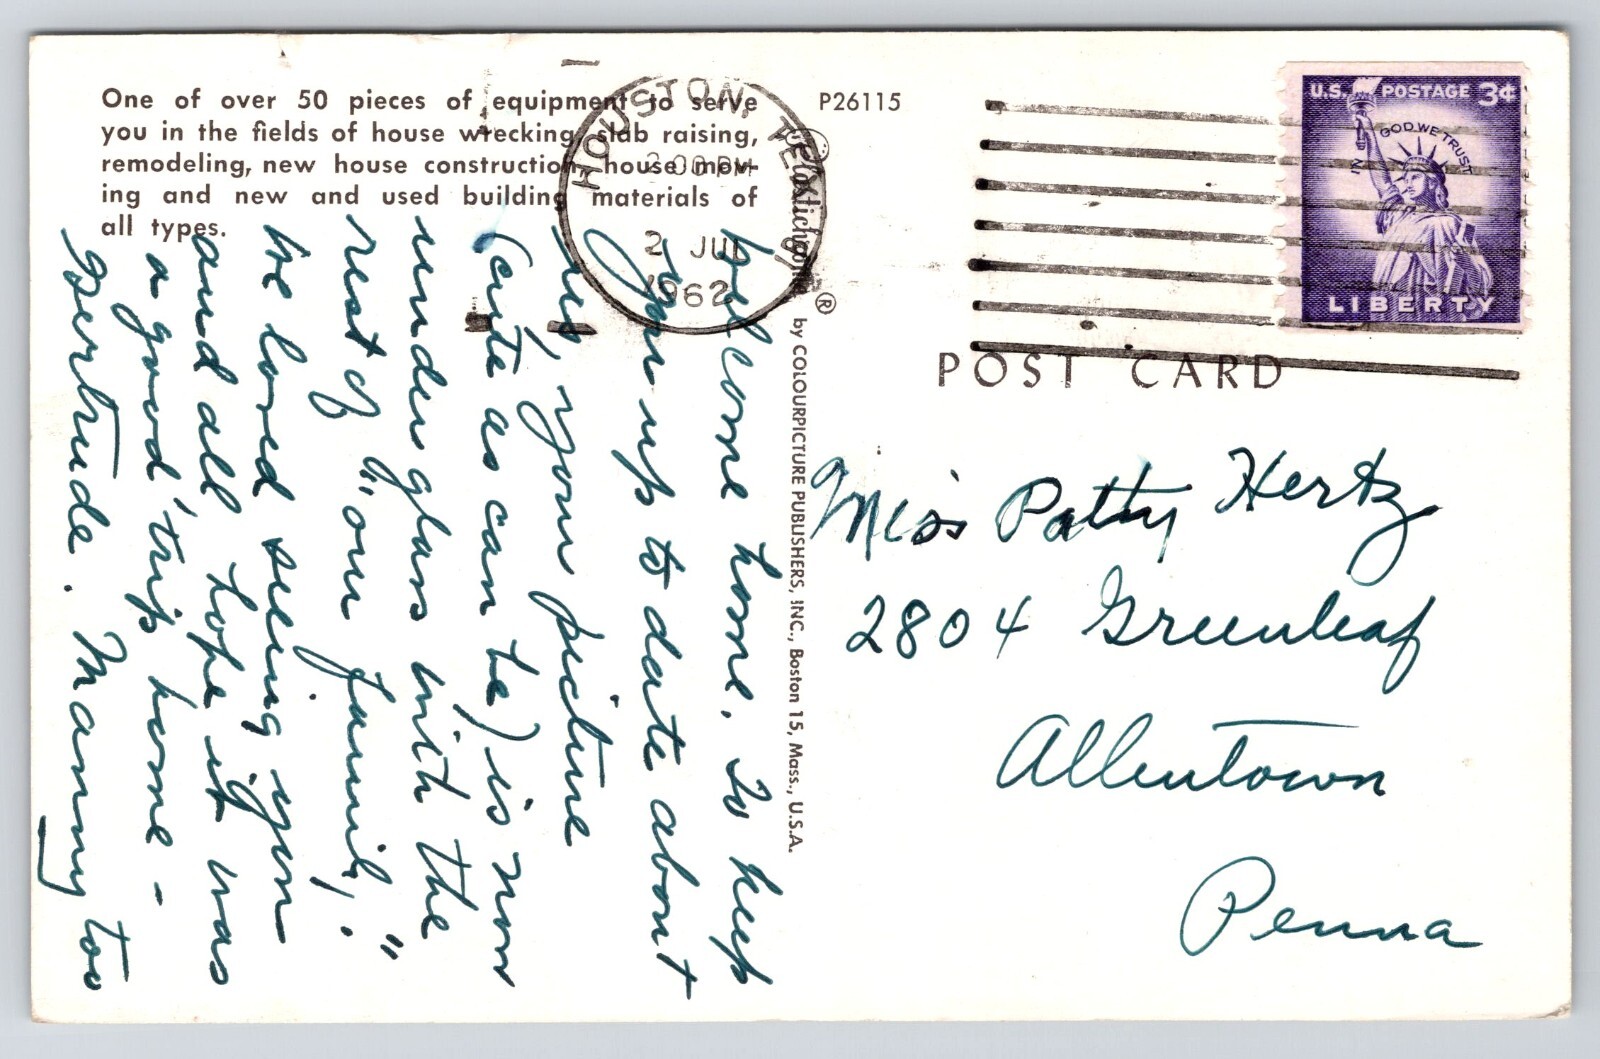 One of over 50 pieces of equipment to serve
you in the fields of house wrecking, slab raising,
remodeling, new house construction, house mov-
ing and new and used building materials of
all types.
P26115
HOUSTON, TEX
2 00 PM
2 JUL
1962
U.S. POSTAGE 3¢
IN GOD WE TRUST
LIBERTY
POST CARD
Plastichrome ® by COLOURPICTURE PUBLISHERS, INC., Boston 15, Mass., U.S.A.
Welcome home. To keep
you up to date about
us, your picture
(cute as can be) is now
under glass with the
rest of "our family."
We loved seeing you
and all hope it was
a good trip home -
Gertrude. Manny too
Miss Patty Hertz
2804 Greenleaf
Allentown
Penna